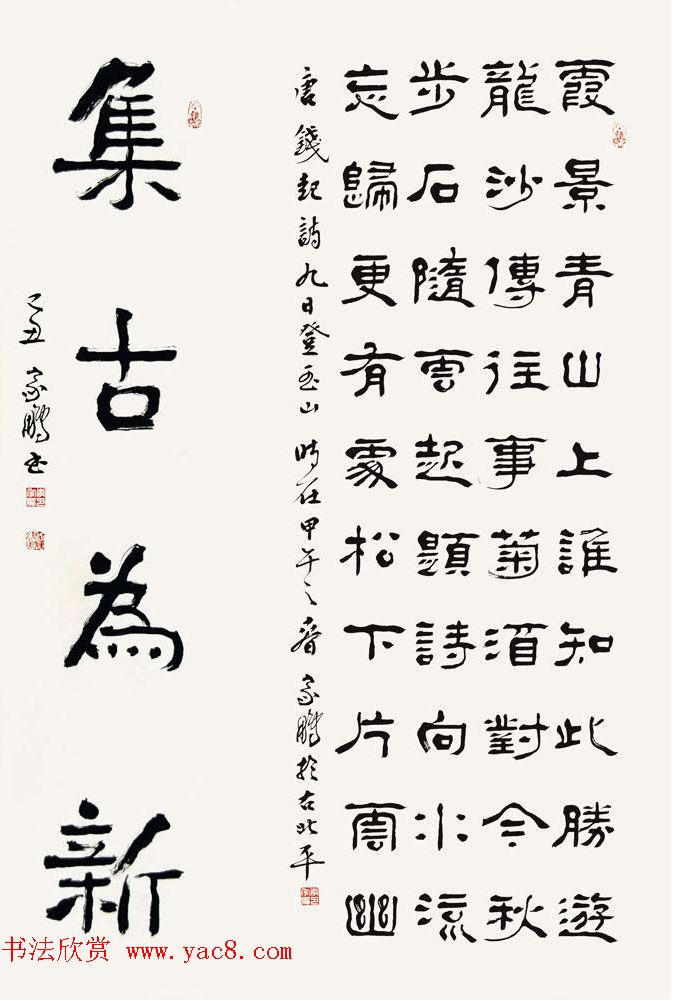 霞景青山上誰知此勝遊
龍沙傳往事菊酒對今秋
步石隨雲起題詩向水流
忘歸更有處松下片雲幽
唐錢起詩九日登玉山 時在甲午之春 家鵬於右北平
集古為新
己丑 家鵬書
书法欣赏 www.yac8.com